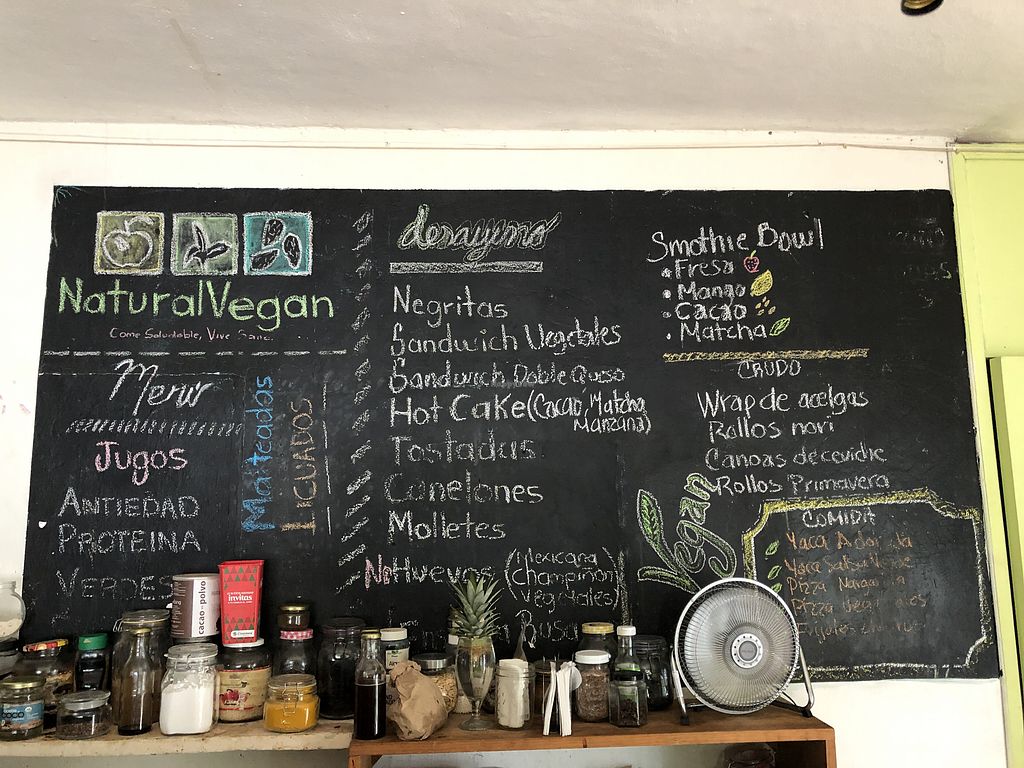 NaturalVegan
Come Saludable, Vive Sano.
Menu
Jugos
ANTIEDAD
PROTEINA
VERDES
Malteados
LICUADOS
desayuno
Negritas
Sandwich Vegetales
Sandwich Doble Queso
Hot Cake (Cacao, Matcha
Manzana)
Tostadas
Canelones
Molletes
NoHuevos (Mexicana
Champiñon
Vegetales)
Smothie Bowl
Fresa
Mango
Cacao
Matcha
CRUDO
Wrap de acelgas
Rollos nori
Canoas de ceviche
Rollos Primavera
Vegan
COMIDA
Yaca
Yaca Salsa Verde
Pizza
Pizza
cacao en polvo
invitas